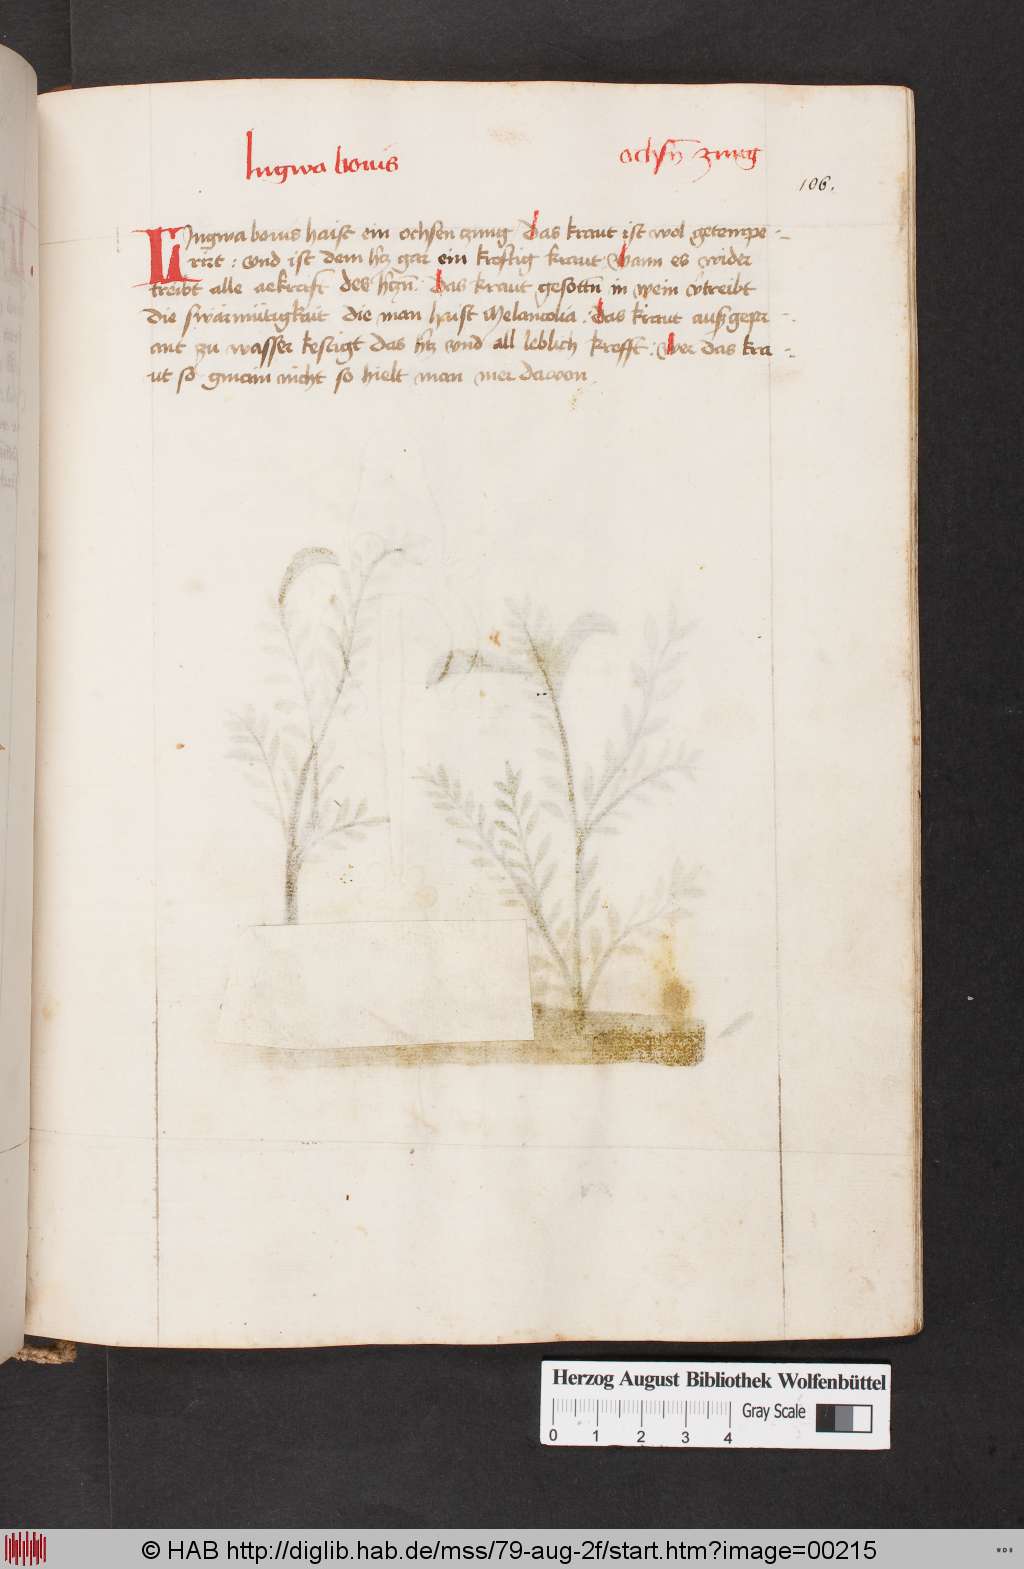 lingwa bouis
ochsn̄ zung
106.
Lingwa bouis haist ein ochsen zung Das kraut ist wol getempe
rirt : vnd ist dem htz gar ein kreftig kraut Wann es wider
treibt alle aekraft des htzn̄ . Das kraut gesottn̄ in wein v̄treibt
die swarmütigkait die man haist Melancolia . Das kraut auß geprant
ant zu wasser kestigt das htz vnd all leblich krafft : Wer das kra
ut so gmain nicht so hielt man mer dauon .
Herzog August Bibliothek Wolfenbüttel
Gray Scale
0 1 2 3 4
© HAB http://diglib.hab.de/mss/79-aug-2f/start.htm?image=00215